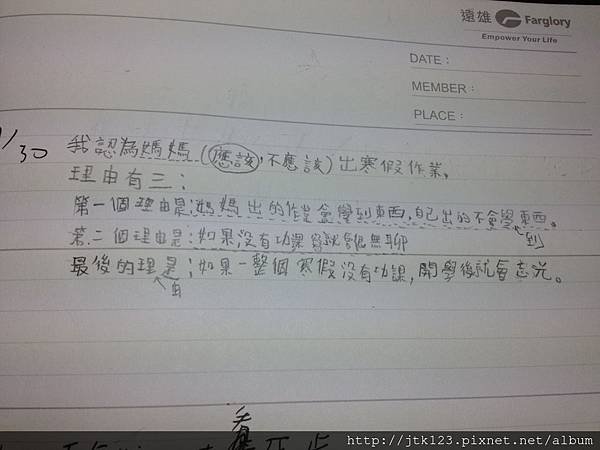 遠雄 Farglory
Empower Your Life
DATE：
MEMBER：
PLACE：
1/30 我認為媽媽(應該,不應該)出寒假作業,
理由有三:
第一個理由是:媽媽出的作業會學到東西,自己出的不會學到東西。
第二個理由是:如果沒有功課 無聊
最後的理由是;如果一整個寒假沒有功課,開學後就會忘光。
看
http://jtk123.pixnet.net/album